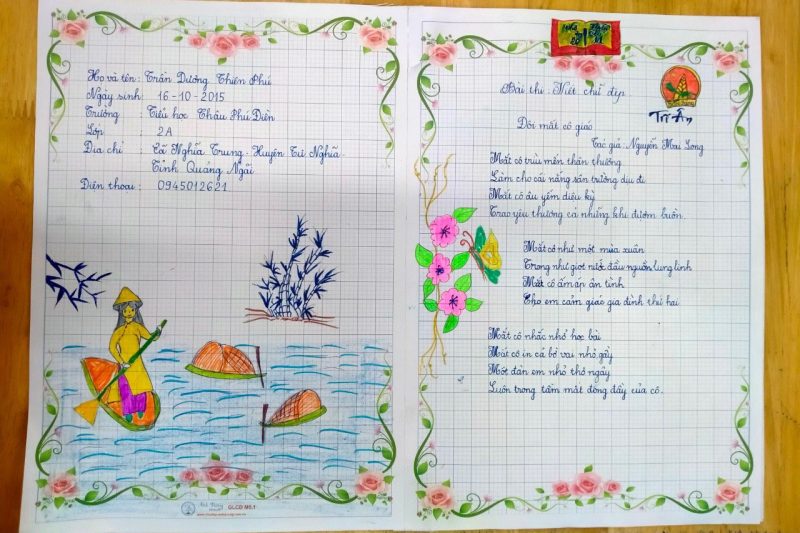 Họ và tên: Trần Dương Thiên Phú
Ngày sinh: 16-10-2015
Trường : Tiểu học Châu Phú Điền
Lớp : 2A
Địa chỉ : Xã Nghĩa Trung - Huyện Tư Nghĩa -
Tỉnh Quảng Ngãi
Điện thoại : 0945012621
GLCD MS:1
Bài thi: Viết chữ đẹp
Tri Ân
Đôi mắt cô giáo
Tác giả: Nguyễn Mai Long
Mắt cô trìu mến thân thương
Làm cho cái nắng sân trường dịu đi
Mắt cô âu yếm diệu kỳ
Trao yêu thương cả những khi đượm buồn.
Mắt cô như một mùa xuân
Trong như giọt nước đầu nguồn lung linh
Mắt cô ấm áp ân tình
Cho em cảm giác gia đình thứ hai
Mắt cô nhắc nhở học bài
Mắt cô in cả bờ vai nhỏ gầy
Một đàn em nhỏ thơ ngây
Luôn trong tầm mắt đong đầy của cô.